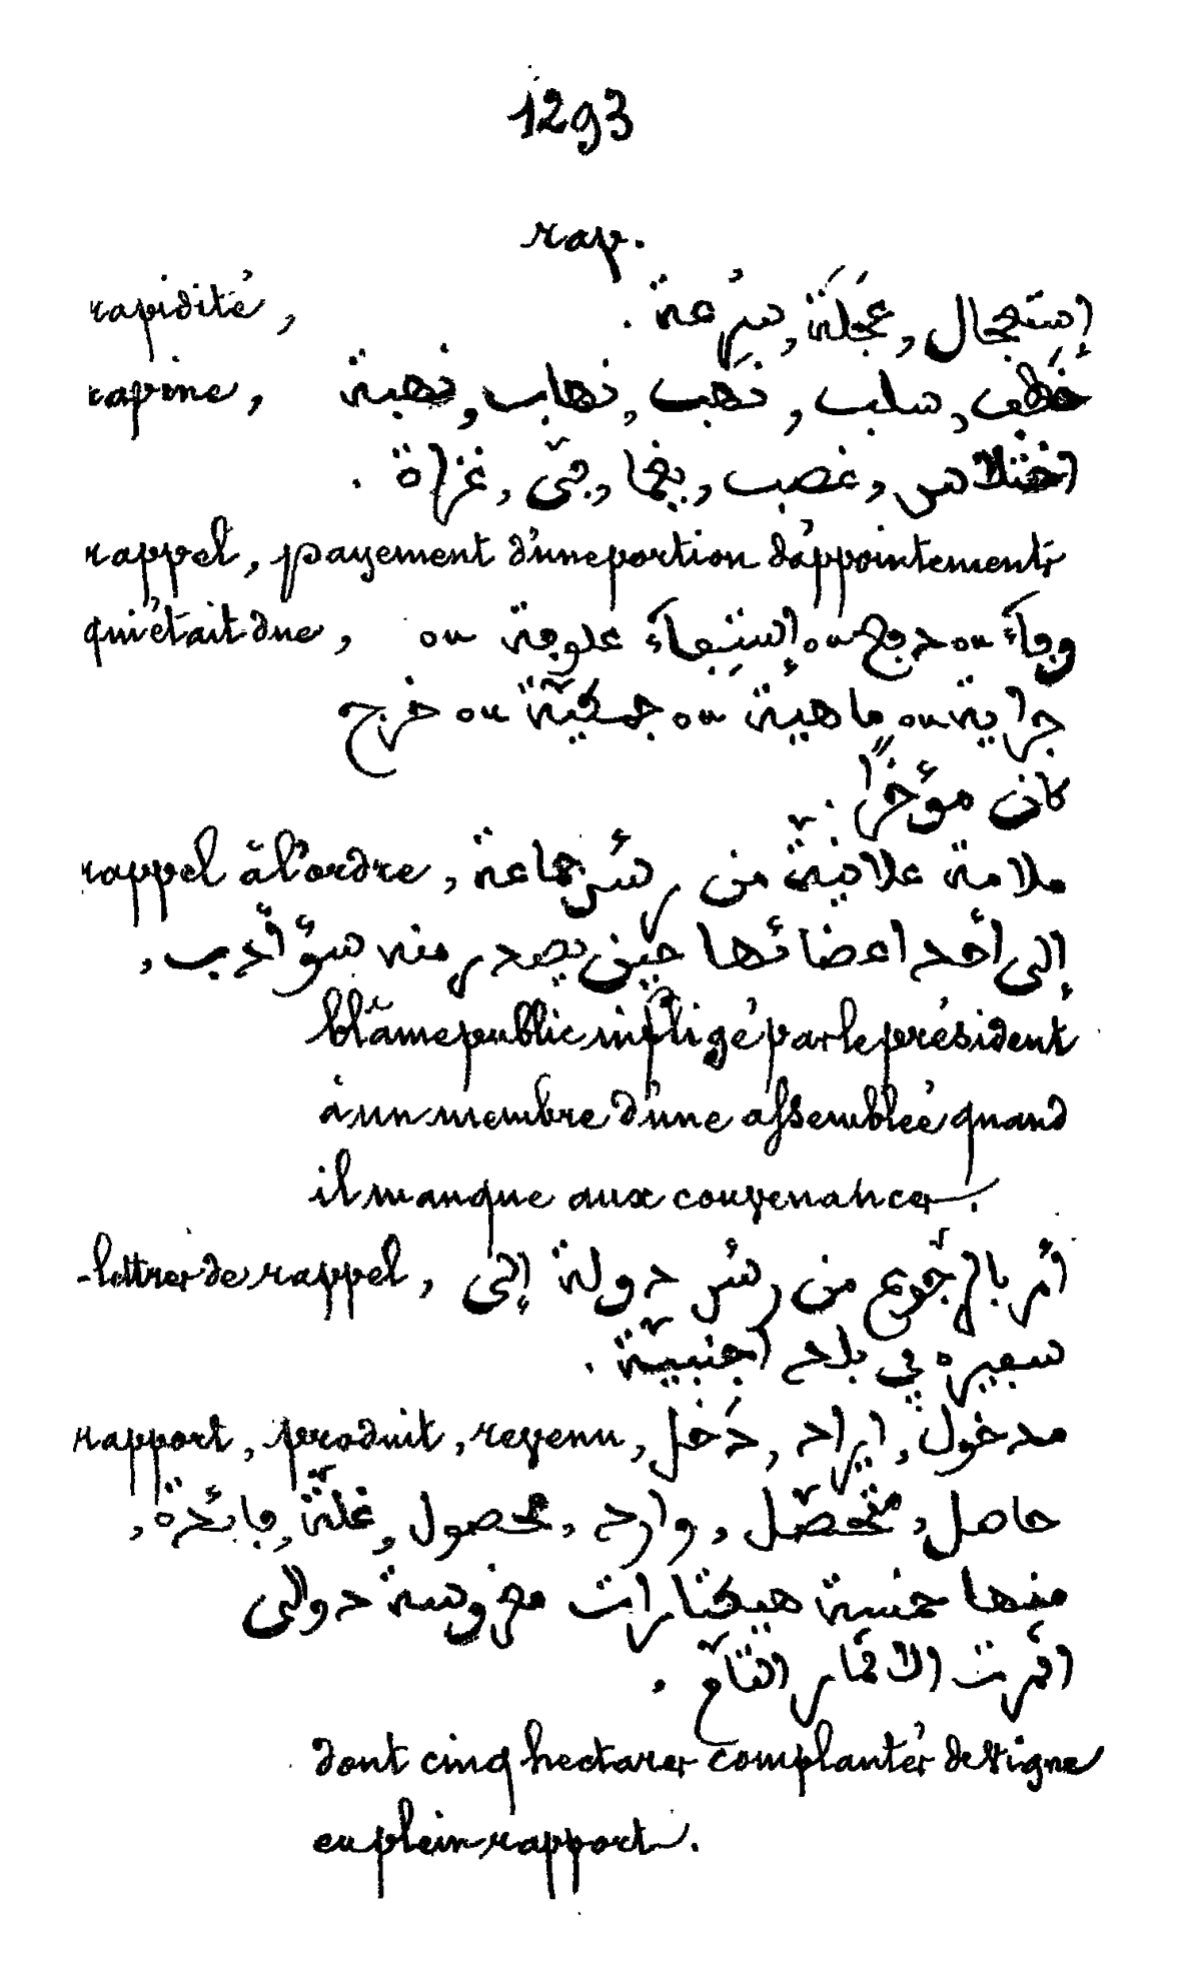 1293
rap.
rapidité, إستعجال, عَجَلة, سُرْعة.
rapine, خَطْف, سلب, نَهْب, نهاب, نهبة,
اختلاس, غصب, يغما, فيّ, غزاة.
rappel, payement d'une portion d'appointements
qui était due, وفاء ou دفع ou إستيفاء علوفة ou
جراية ou ماهيئة ou جمكيّة ou خرج
كان مؤخرًا.
rappel à l'ordre, ملامة علانيّة من رئس جماعة
إلى أحد اعضائها حين يصدر منه سؤ أدب,
blâme public infligé par le président
à un membre d'une assemblée quand
il manque aux convenances.
-lettres de rappel, أمر بالرّجوع من رئس دولة إلى
سفيره في بلد اجنبيّة.
rapport, produit, revenu, مدخول, ايراد, دَخل,
حاصل, متحصّل, وارد, محصول, غلّة, فائدة,
منها خمسة هيكتارات مغروسة دوالي
اثمرت الاثمار التامّ.
dont cinq hectares complantés de vigne
en plein rapport.